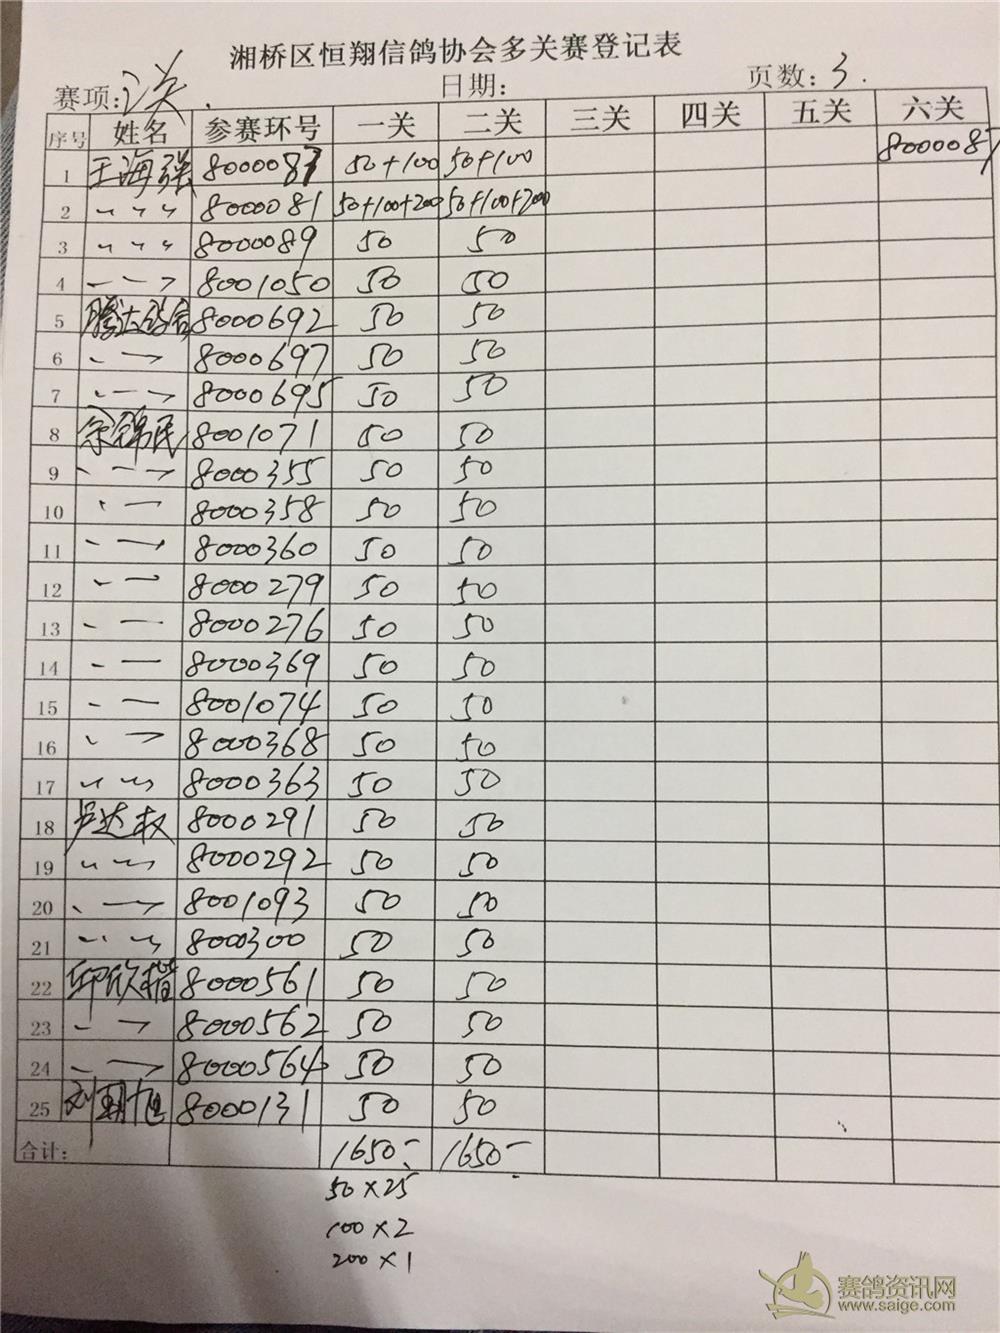 湘桥区恒翔信鸽协会多关赛登记表
赛项: 关. 日期: 页数: 3.
序号 姓名 参赛环号 一关 二关 三关 四关 五关 六关
1 王海强 8000087 50+100 50+100 8000087
2 〃 〃 〃 8000081 50+100+200 50+100+200
3 〃 〃 〃 8000089 50 50
4 8001050 50 50
5 腾达鸽舍 8000692 50 50
6 8000697 50 50
7 8000695 50 50
8 余锦民 8001071 50 50
9 8000355 50 50
10 8000358 50 50
11 8000360 50 50
12 8000279 50 50
13 8000276 50 50
14 8000369 50 50
15 8001074 50 50
16 8000368 50 50
17 〃 〃 8000363 50 50
18 卢达权 8000291 50 50
19 〃 〃 8000292 50 50
20 8001093 50 50
21 〃 〃 8000300 50 50
22 邱欣楷 8000561 50 50
23 8000562 50 50
24 8000564 50 50
25 刘朝旭 8000131 50 50
合计: 1650- 1650-
50×25
100×2
200×1
赛鸽资讯网
www.saige.com